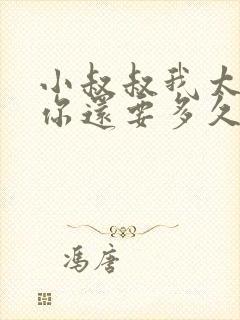 小叔叔我太
你還要多久
馮唐